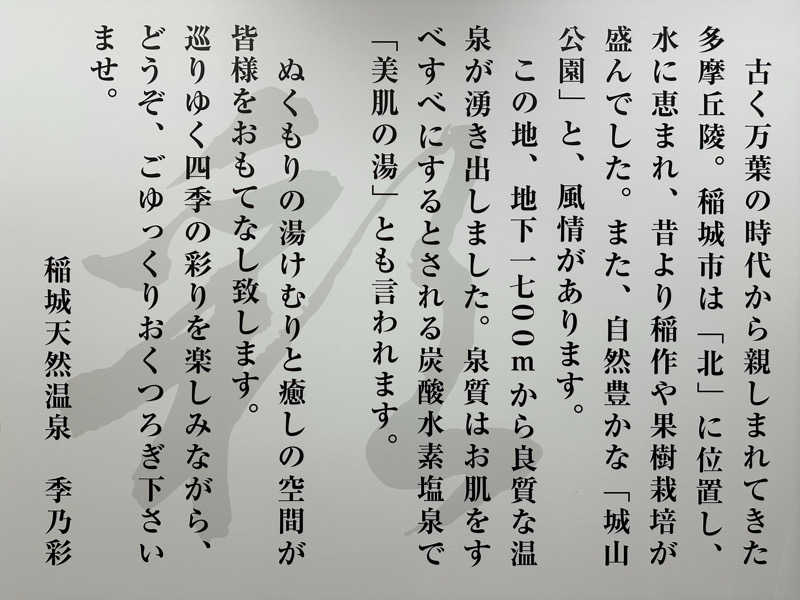 古く万葉の時代から親しまれてきた
多摩丘陵。稲城市は「北」に位置し、
水に恵まれ、昔より稲作や果樹栽培が
盛んでした。また、自然豊かな「城山
公園」と、風情があります。
この地、地下一七００ｍから良質な温
泉が湧き出しました。泉質はお肌をす
べすべにするとされる炭酸水素塩泉で
「美肌の湯」とも言われます。
ぬくもりの湯けむりと癒しの空間が
皆様をおもてなし致します。
巡りゆく四季の彩りを楽しみながら、
どうぞ、ごゆっくりおくつろぎ下さい
ませ。
稲城天然温泉　季乃彩